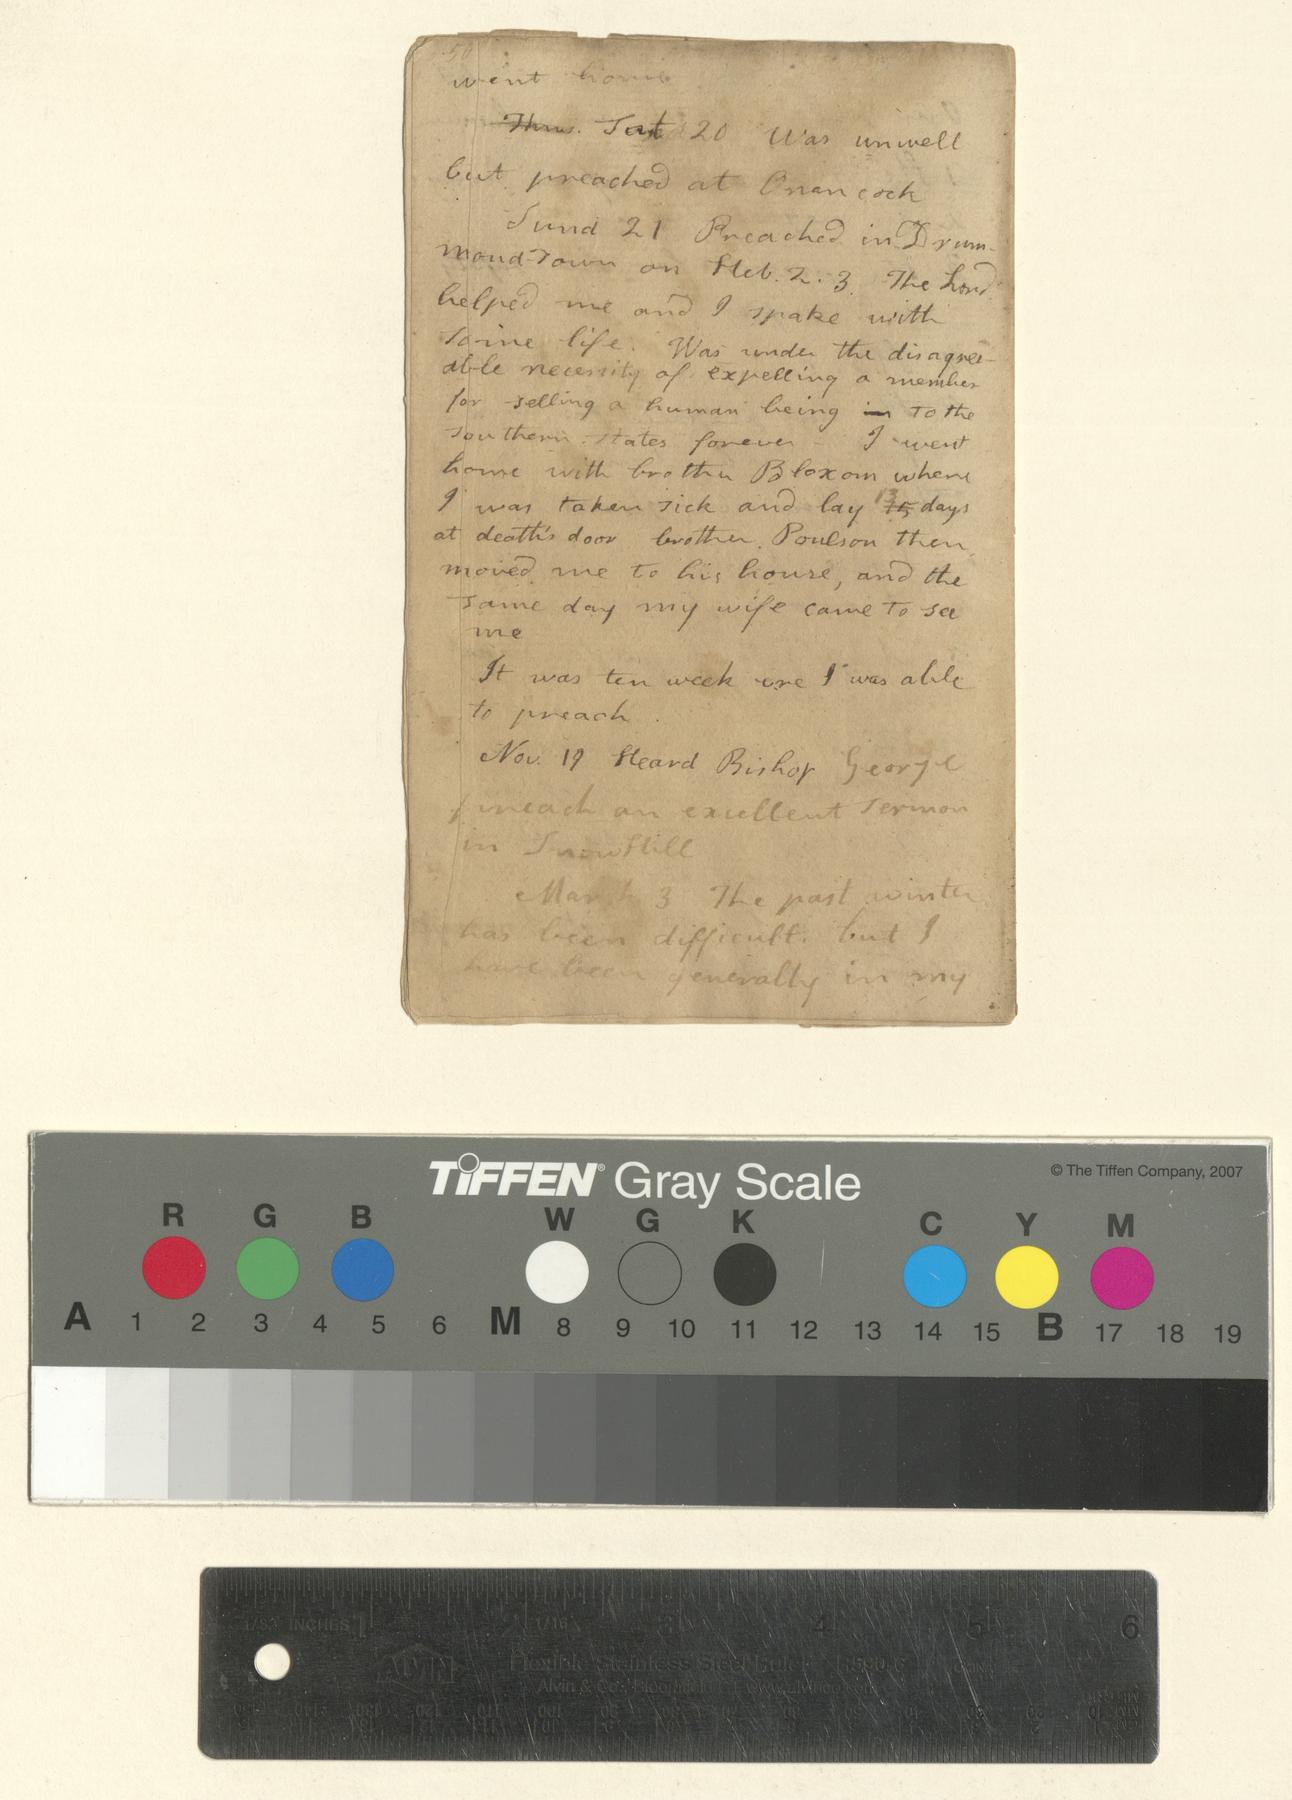 50
went home
Thurs. Sat 20 Was unwell
but preached at Onancock
Sund 21 Preached in Drum-
mond-Town on Heb. 2. 3. The Lord
helped me and I spake with
some life. Was under the disagree-
able necessity of expelling a member
for selling a human being in to the
southern states forever - I went
house with brother Bloxom where
I was taken sick and lay 15 13 days
at death's door brother Poulson then
moved me to his house, and the
same day my wife came to see
me
It was ten week ere I was able
to preach.
Nov. 19 Heard Bishop George
preach an excellent sermon
in SnowHill
March 3 The past winter
has been difficult. but I
have been generally in my
TIFFEN® Gray Scale
© The Tiffen Company, 2007
R G B W G K C Y M
A 1 2 3 4 5 6 M 8 9 10 11 12 13 14 15 B 17 18 19
1/32 INCHES 1 1/16 3 4 5 6
ALVIN Flexible Stainless Steel Ruler
Alvin & Co., Bloomfield